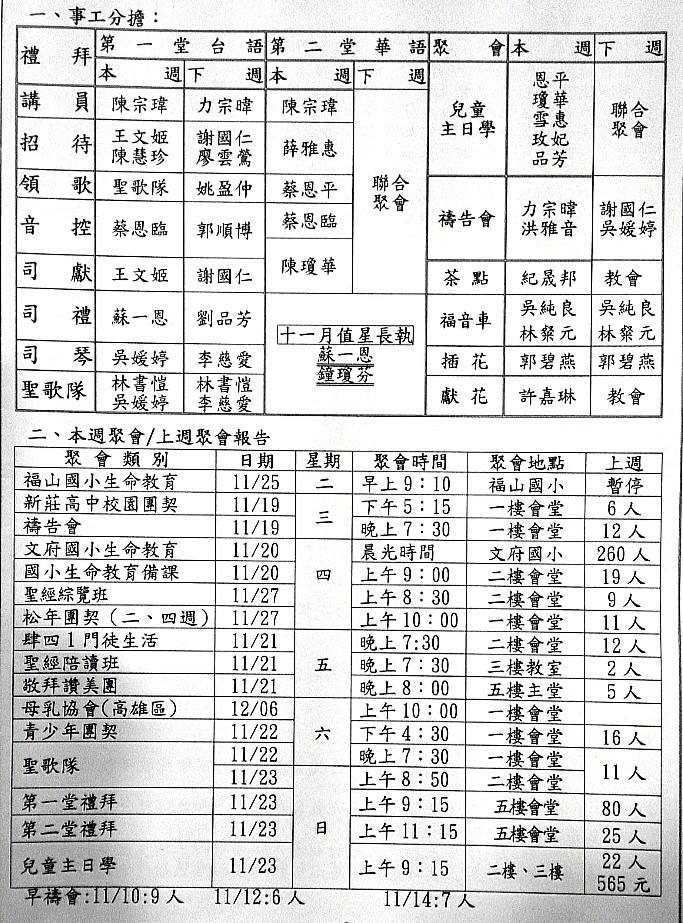 一、事工分擔：
禮拜 第一堂台語 第二堂華語 聚會 本週 下週
本週 下週 本週 下週
講員 陳宗瑋 力宗暐 陳宗瑋
招待 王文姬 陳慧珍 謝國仁 廖雲鶯 薛雅惠
領歌 聖歌隊 姚盈仲 蔡恩平
音控 蔡恩臨 郭順博 蔡恩臨
司獻 王文姬 謝國仁 陳瓊華
聯合聚會
司禮 蘇一恩 劉品芳
司琴 吳媛婷 李慈愛
聖歌隊 林書愷 吳媛婷 林書愷 李慈愛
十一月值星長執
蘇一恩
鐘瓊芬
兒童主日學 恩平 瓊華 雪惠 玫妃 品芳 聯合聚會
禱告會 力宗暐 洪雅音 謝國仁 吳媛婷
茶點 紀晟邦 教會
福音車 吳純良 林粲元 吳純良 林粲元
插花 郭碧燕 郭碧燕
獻花 許嘉琳 教會
二、本週聚會/上週聚會報告
聚會類別 日期 星期 聚會時間 聚會地點 上週
福山國小生命教育 11/25 二 早上9：10 福山國小 暫停
新莊高中校園團契 11/19 三 下午5：15 一樓會堂 6人
禱告會 11/19 晚上7：30 一樓會堂 12人
文府國小生命教育 11/20 四 晨光時間 文府國小 260人
國小生命教育備課 11/20 上午9：00 二樓會堂 19人
聖經綜覽班 11/27 上午8：30 二樓會堂 9人
松年團契（二、四週） 11/27 上午10：00 一樓會堂 11人
肆四1門徒生活 11/21 五 晚上7:30 二樓會堂 12人
聖經陪讀班 11/21 晚上7：30 三樓教室 2人
敬拜讚美團 11/21 晚上8：00 五樓主堂 5人
母乳協會(高雄區) 12/06 六 上午10：00 一樓會堂
青少年團契 11/22 下午4：30 一樓會堂 16人
聖歌隊 11/22 晚上7：30 一樓會堂 11人
11/23 日 上午8：50 二樓會堂
第一堂禮拜 11/23 上午9：15 五樓會堂 80人
第二堂禮拜 11/23 上午11：15 五樓會堂 25人
兒童主日學 11/23 上午9：15 二樓、三樓 22人 565元
早禱會:11/10:9人 11/12:6人 11/14:7人